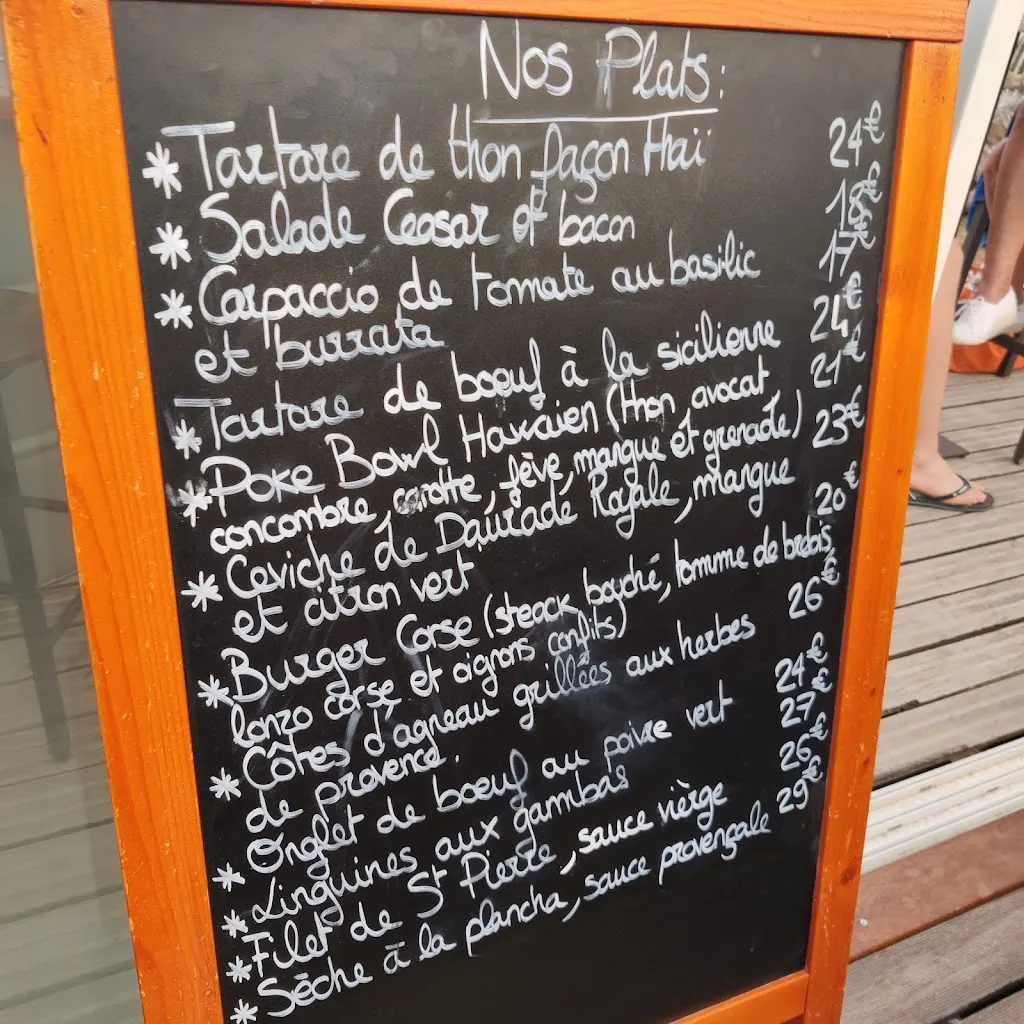 Nos Plats:
* Tartare de thon façon thaï 24€
* Salade Ceasar et bacon 18€
* Carpaccio de tomate au basilic 17€
et burrata
* Tartare de boeuf à la sicilienne 24€
* Poke Bowl Hawaien (thon, avocat, 21€
concombre, carotte, fève, mangue et grenade)
* Ceviche de Daurade Royale, mangue 23€
et citron vert
* Burger Corse (steack boucher, tomme de brebis, 20€
lonzo corse et oignons confits)
* Côtes d'agneau grillées aux herbes 26€
de provence.
* Onglet de boeuf au poivre vert 24€
* Linguines aux gambas 27€
* Filet de St Pierre, sauce vièrge 26€
* Sèche à la plancha, sauce provençale 29€